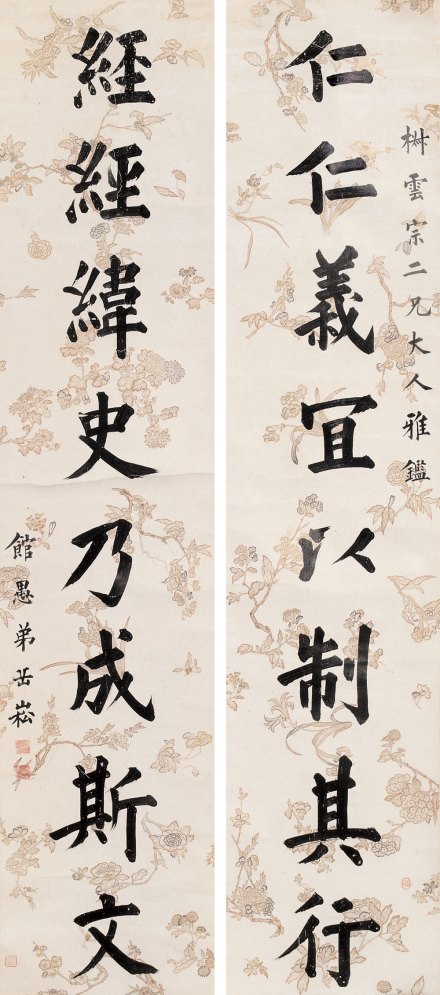 樹雲宗二兄大人雅鑑
仁仁義宜以制其行
經經緯史乃成斯文
館愚弟岳崧